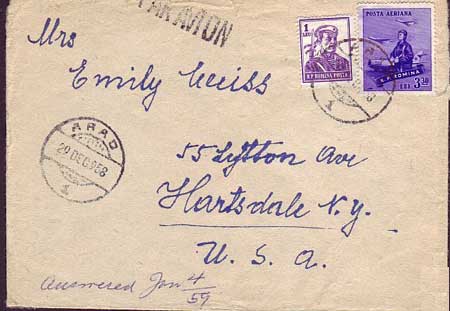 PAR AVION
Mrs
Emily Weiss
55 Lytton Ave
Hartsdale N.Y.
U. S. A.
Answered Jan 4/59
1
R.P. ROMINA POSTA
POSTA AERIANA
R.P. ROMINA
LEI
ARAD
29 DEC 958
1
1